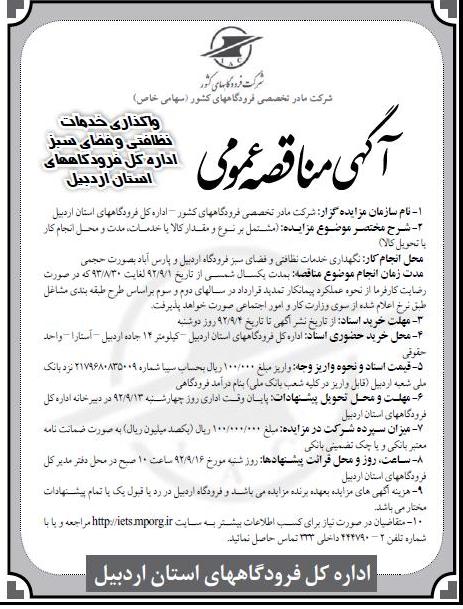 IAC
شرکت فرودگاههای کشور
شرکت مادر تخصصی فرودگاههای کشور (سهامی خاص)
آگهی مناقصه عمومی
واگذاری خدمات
نظافتی و فضای سبز
اداره کل فرودگاههای
استان اردبیل
۱- نام سازمان مزایده گزار: شرکت مادر تخصصی فرودگاههای کشور – اداره کل فرودگاههای استان اردبیل
۲- شرح مختصر موضوع مزایده: (مشتمل بر نوع و مقدار کالا یا خدمات، مدت و محل انجام کار
یا تحویل کالا)
محل انجام کار: نگهداری خدمات نظافتی و فضای سبز فرودگاه اردبیل و پارس آباد بصورت حجمی
مدت زمان انجام موضوع مناقصه: بمدت یکسال شمسی از تاریخ ۹۲/۹/۱ لغایت ۹۳/۸/۳۰ که در صورت
رضایت کارفرما از نحوه عملکرد پیمانکار تمدید قرارداد در سالهای دوم و سوم براساس طرح طبقه بندی مشاغل
طبق نرخ اعلام شده از سوی وزارت کار و امور اجتماعی صورت خواهد پذیرفت.
۳- مهلت خرید اسناد: از تاریخ نشر آگهی تا تاریخ ۹۲/۹/۴ روز دوشنبه
۴- محل خرید حضوری اسناد: اداره کل فرودگاههای استان اردبیل – کیلومتر ۱۴ جاده اردبیل – آستارا – واحد
حقوقی
۵- قیمت اسناد و نحوه واریز وجه: واریز مبلغ ۱۰۰/۰۰۰ ریال بحساب سیبا شماره ۲۱۷۹۶۸۰۸۳۵۰۰۹ نزد بانک
ملی شعبه اردبیل (قابل واریز در کلیه شعب بانک ملی) بنام درآمد فرودگاهی
۶- مهلت و محل تحویل پیشنهادات: پایان وقت اداری روز چهارشنبه ۹۲/۹/۱۳ در دبیرخانه اداره کل
فرودگاههای استان اردبیل
۷- میزان سپرده شرکت در مزایده: مبلغ ۱۰۰/۰۰۰/۰۰۰ ریال (یکصد میلیون ریال) به صورت ضمانت نامه
معتبر بانکی و یا چک تضمینی بانکی
۸- ساعت، روز و محل قرائت پیشنهادها: روز شنبه مورخ ۹۲/۹/۱۶ ساعت ۱۰ صبح در محل دفتر مدیر کل
فرودگاههای استان اردبیل
۹- هزینه آگهی های مزایده بعهده برنده مزایده می باشد و فرودگاه اردبیل در رد یا قبول یک یا تمام پیشنهادات
مختار می باشد.
۱۰- متقاضیان در صورت نیاز برای کسب اطلاعات بیشتر به سایت http://iets.mporg.ir مراجعه و یا با
شماره تلفن ۲ – ۴۴۴۷۹۰ داخلی ۳۳۳ تماس حاصل نمائید.
اداره کل فرودگاههای استان اردبیل